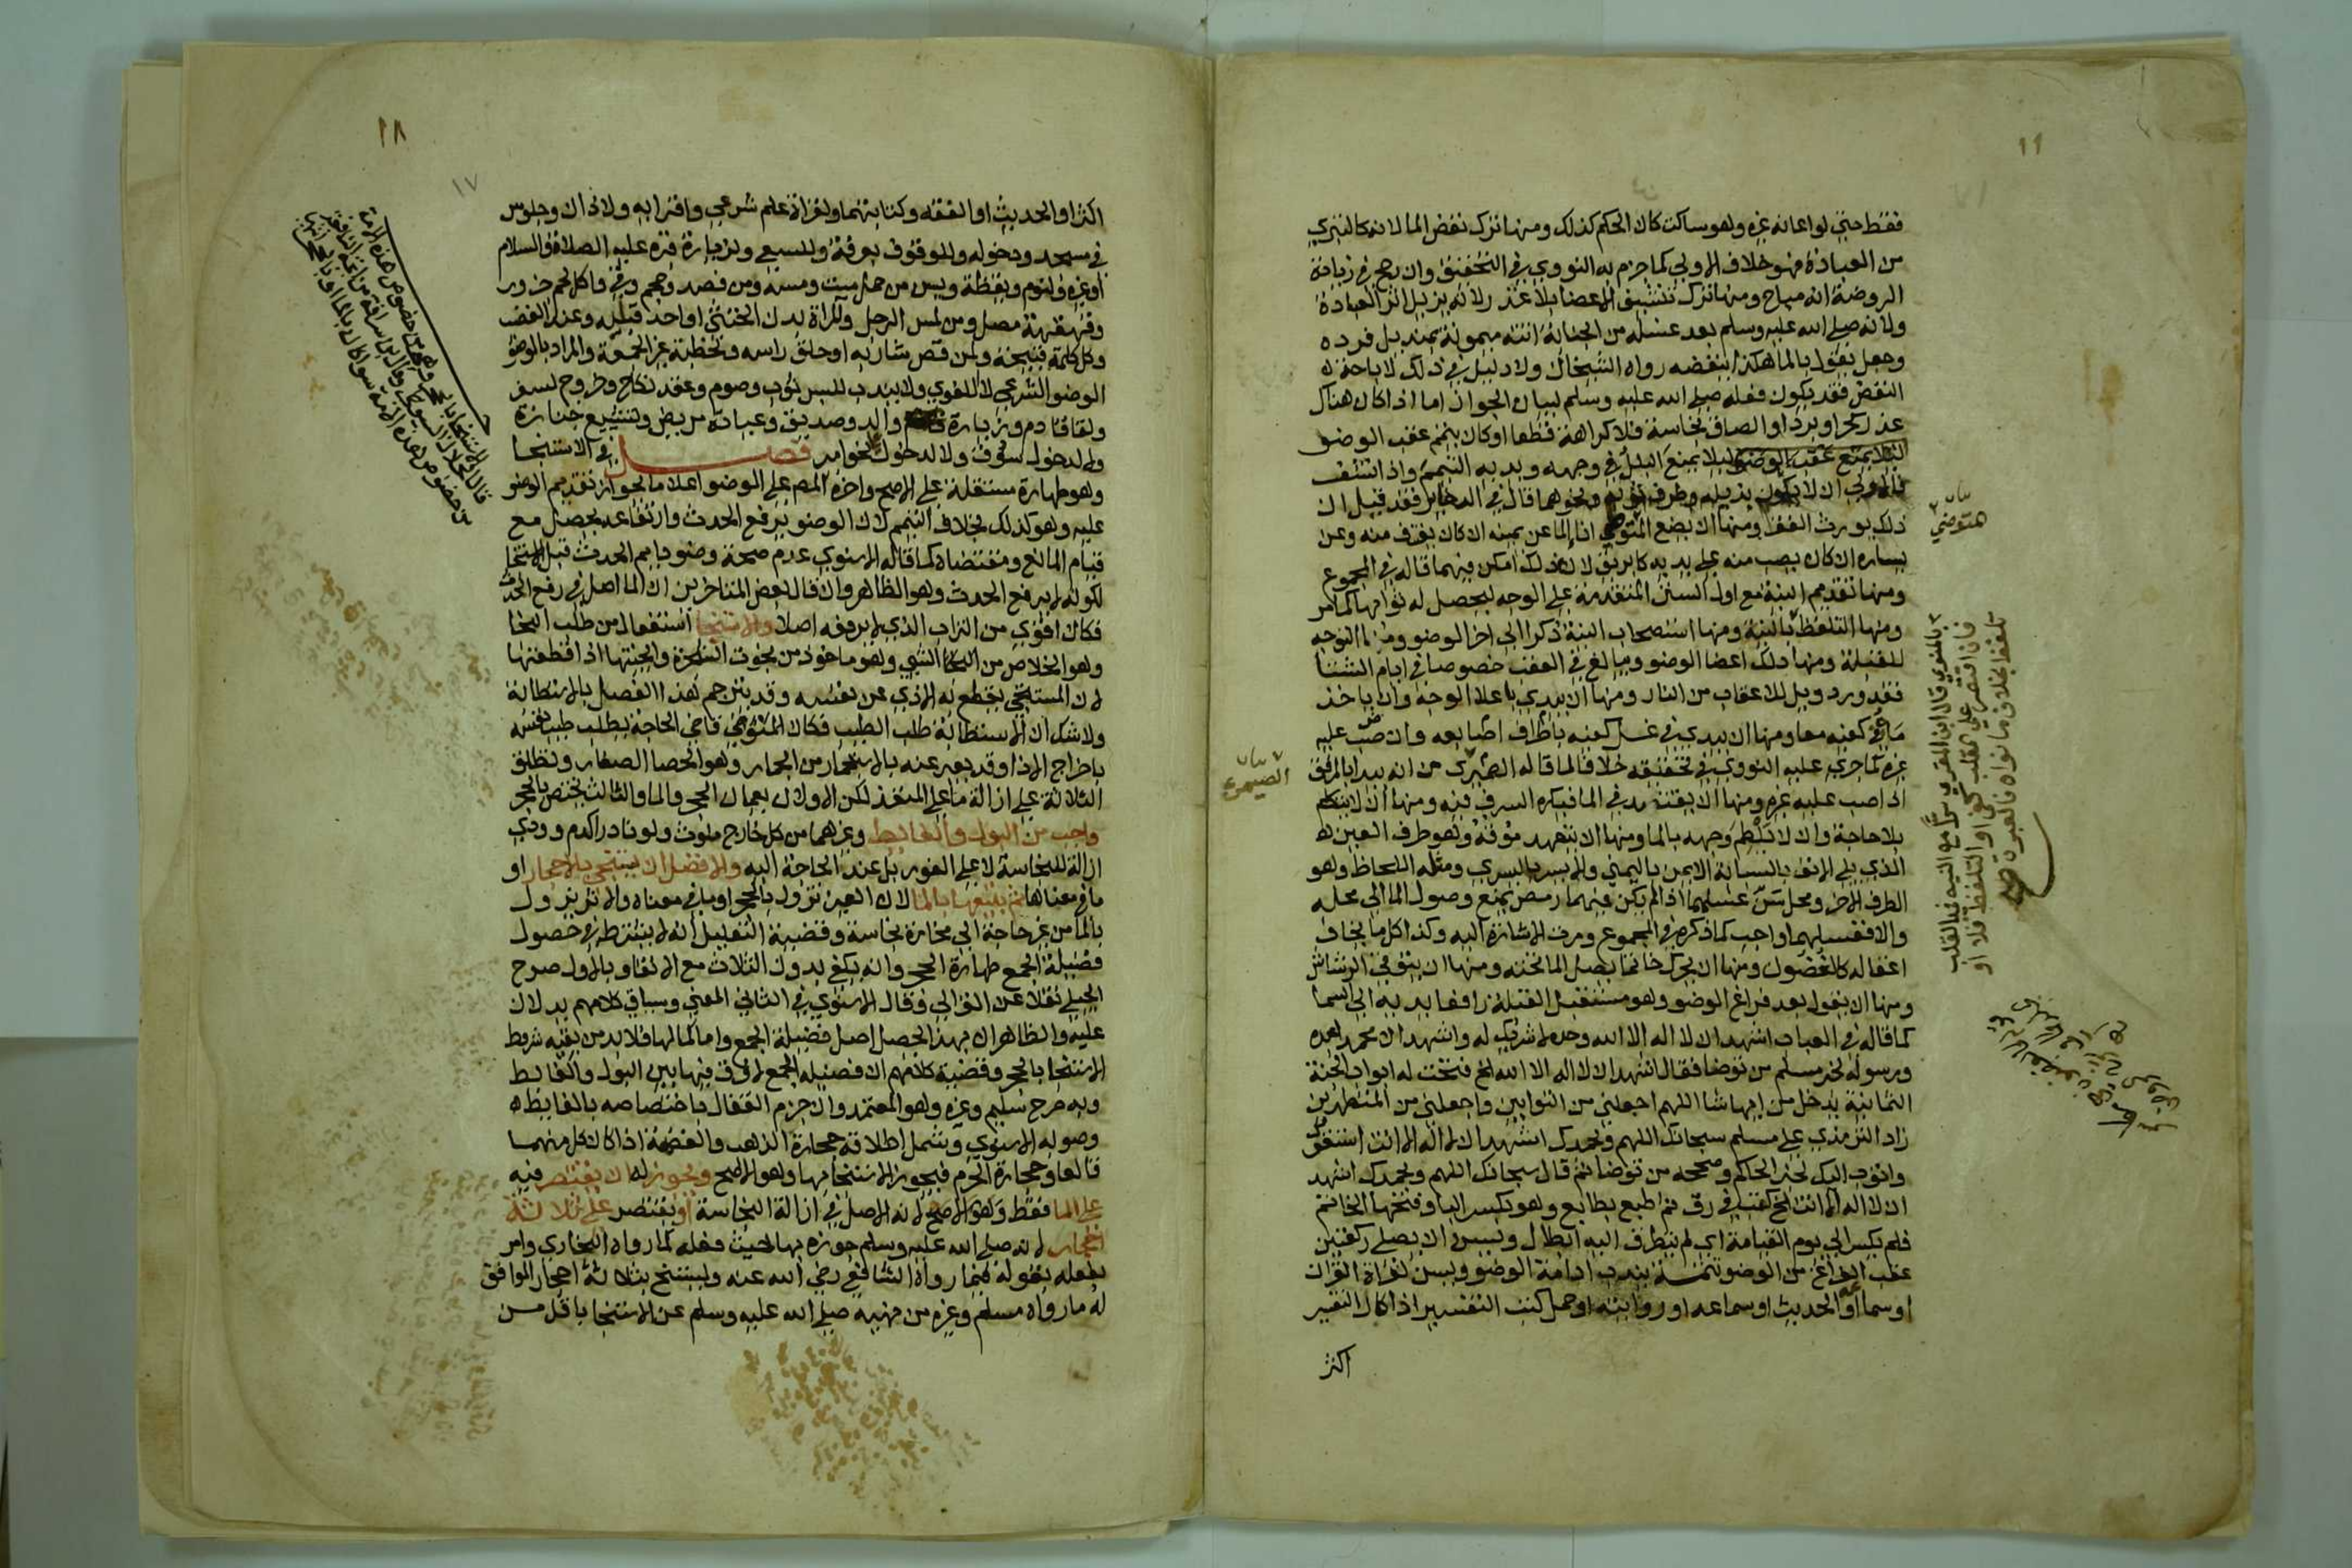 فقط حتي لو اعانه غيره وهو ساكت كان الحكم كذلك ومنها ترك نفض الما لانه كالتبري
من العبادة فهو خلاف الاولي كما جزم به النووي في التحقيق وان رجح في زيادة
الروضة انه مباح ومنها ترك تنشيف الاعضا بلا عذر لانه يزيل اثر العبادة
ولانه صلي الله عليه وسلم بعد غسله من الجنابة اتته ميمونة بمنديل فرده
وجعل يقول بالما هكذا ينفضه رواه الشيخان ولا دليل في ذلك لاباحة
النفض فقد يكون فعله صلي الله عليه وسلم لبيان الجواز اما اذا كان هناك
عذر كحر او برد او التصاق نجاسة فلا كراهة قطعا او كان يتيمم عقب الوضو
ليلا يمنع البلل في وجهه ويديه التيمم واذا تنشف
فالاولي ان لا يكون بذيله وطرف ثوبه ونحوهما قال في الدخاير فقد قيل ان
ذلك يورث الفقر ومنها ان يضع المتوضي انا الما عن يمينه ان كان يغترف منه وعن
يساره ان كان يصب منه علي يديه كابريق لان ذلك امكن فيهما قاله في المجموع
ومنها تقديم النية مع اول السنن المتقدمة علي الوجه ليحصل له ثوابها كما مر
ومنها التلفظ بالنية ومنها استصحاب النية ذكرا الي اخر الوضو ومنها التوجه
للقبلة ومنها دلك اعضا الوضو ويبالغ في العقب خصوصا في ايام الشتا
فقد ورد ويل للاعقاب من النار ومنها ان يبدي باعلا الوجه وان ياخذ
ماه بكفيه معا ومنها ان يبدي في غسل كفيه باطراف اصابعه وان صب عليه
غيره كما جري عليه النووي في تحقيقه خلافا لما قاله الصيمري من انه يبدا بالمرفق
اذا صب عليه غيره ومنها ان يقتصد في الما فيكره السرف فيه ومنها ان لا يتكلم
بلا حاجة وان لا يلطم وجهه بالما ومنها ان يتعهد موقه وهو طرف العين
الذي يلي الانف بالسبابة الايمن باليمني والايسر باليسري ومثله اللحاظ وهو
الطرف الاخر ومحل سن غسلهما اذا لم يكن فيهما رمص يمنع وصول الما الي محله
والا فغسلهما واجب كما ذكره في المجموع ومرت الاشارة اليه وكذا كل ما يخاف
اغفاله كالغضون ومنها ان يحرك خاتما يصل الما تحته ومنها ان يتوقي الرشاش
ومنها ان يقول بعد فراغ الوضو وهو مستقبل القبلة رافعا يديه الي السما
كما قاله في العباب اشهد ان لا اله الا الله وحده لا شريك له واشهد ان محمدا عبده
ورسوله لخبر مسلم من توضا فقال اشهد ان لا اله الا الله الخ فتحت له ابواب الجنة
الثمانية يدخل من ايها شا اللهم اجعلني من التوابين واجعلني من المتطهرين
زاد الترمذي علي مسلم سبحانك اللهم وبحمدك اشهد ان لا اله الا انت استغفرك
واتوب اليك لخبر الحاكم وصححه من توضا ثم قال سبحانك اللهم وبحمدك اشهد
ان لا اله الا انت الخ كتب في رق ثم طبع بطابع وهو بكسر البا وفتحها الخاتم
فلم يكسر الي يوم القيامة اي لم يتطرق اليه ابطال ويسن ان يصلي ركعتين
عقب الفراغ من الوضو تتمة يندب ادامة الوضو ويسن لقراة القران
او سماعه او الحديث او سماعه او روايته او حمل كتب التفسير اذا كان التفسير
اكثر
متوضي
الصيمري
١٨
١٧
اكثر او الحديث او الفقه وكتابتهما ولقراة علم شرعي واقرايه ولاذان وجلوس
في مسجد ودخوله وللوقوف بعرفة وللسعي ولزيارة قبره عليه الصلاة والسلام
او غيره ولنوم ويقظة ويسن من حمل ميت ومسه ومن فصد وحجم وقي واكل لحم جزور
وقهقهة مصل ومن لمس الرجل والمراة بدن الخنثي او احد قبليه وعند الغضب
وكل كلمة قبيحة ولمن قص شاربه او حلق راسه ولخطبة غير الجمعة والمراد بالوضو
الوضو الشرعي لا اللغوي ولا يندب للبس ثوب وصوم وعقد نكاح وخروج لسفر
ولقا قادم وزيارة والد وصديق وعيادة مريض وتشييع جنازة
ولا لدخول سوق ولا لدخول علي نحو امير فصل في الاستنجا
وهو طهارة مستقلة علي الاصح واخره المص علي الوضو اعلاما بجواز تقديم الوضو
عليه وهو كذلك بخلاف التيمم لان الوضو يرفع الحدث وارتفاعه يحصل مع
قيام المانع ومقتضاه كما قاله الاسنوي عدم صحة وضو دايم الحدث قبل الاستنجا
لكونه لا يرفع الحدث وهو الظاهر وان قال بعض المتاخرين ان الما اصل في رفع الحدث
فكان اقوي من التراب الذي لا يرفعه اصلا والاستنجا استفعال من طلب النجا
وهو الخلاص من الشي وهو ماخوذ من نجوت الشجرة وانجيتها اذا قطعتها
لان المستنجي يقطع به الاذي عن نفسه وقد يترجم هذا الفصل بالاستطابة
ولا شك ان الاستطابة طلب الطيب فكان المتوضي قاضي الحاجة يطلب طيب نفسه
باخراج الاذا وقد يعبر عنه بالاستجمار من الجمار وهو الحصا الصغار وتطلق
الثلاثة علي ازالة ما علي المنفذ لكن الاولان يعمان الحجر والما والثالث يختص بالحجر
واجب من البول والغايط وغيرهما من كل خارج ملوث ولو نادرا كدم وودي
ازالة للنجاسة لا علي الفور بل عند الحاجة اليه والافضل ان يستنجي بالاحجار او
ما في معناها ثم يتبعها بالما لان العين تزول بالحجر او ما في معناه والاثر يزول
بالما من غير حاجة الي مخامرة نجاسة وقضية التعليل انه لا يشترط في حصول
فضيلة الجمع طهارة الحجر وانه يكفي بدون الثلاث مع الانقا وبالاول صرح
الجيلي نقلا عن الغزالي وقال الاسنوي في الثاني المعني وسياق كلامهم يدلان
عليه والظاهر ان بهذا يحصل اصل فضيلة الجمع واما كمالها فلا بد من بقية شروط
الاستنجا بالحجر وقضية كلامهم ان فضيلة الجمع لا فرق فيها بين البول والغايط
وبه صرح سليم وغيره وهو المعتمد وان جزم القفال باختصاصه بالغايط
وصوبه الاسنوي وشمل اطلاقه حجارة الذهب والفضة اذا كان كل منهما
قالعا وحجارة الحرم فيجوز الاستنجا بها وهو الاصح ويجوز له ان يقتصر فيه
علي الما فقط وهو الاصح لانه الاصل في ازالة النجاسة او يقتصر علي ثلاثة
احجار لانه صلي الله عليه وسلم جوزه بها حيث فعله كما رواه البخاري وامر
بفعله بقوله فيما رواه الشافعي رضي الله عنه وليستنج بثلاثة احجار الموافق
له ما رواه مسلم وغيره من نهيه صلي الله عليه وسلم عن الاستنجا باقل من